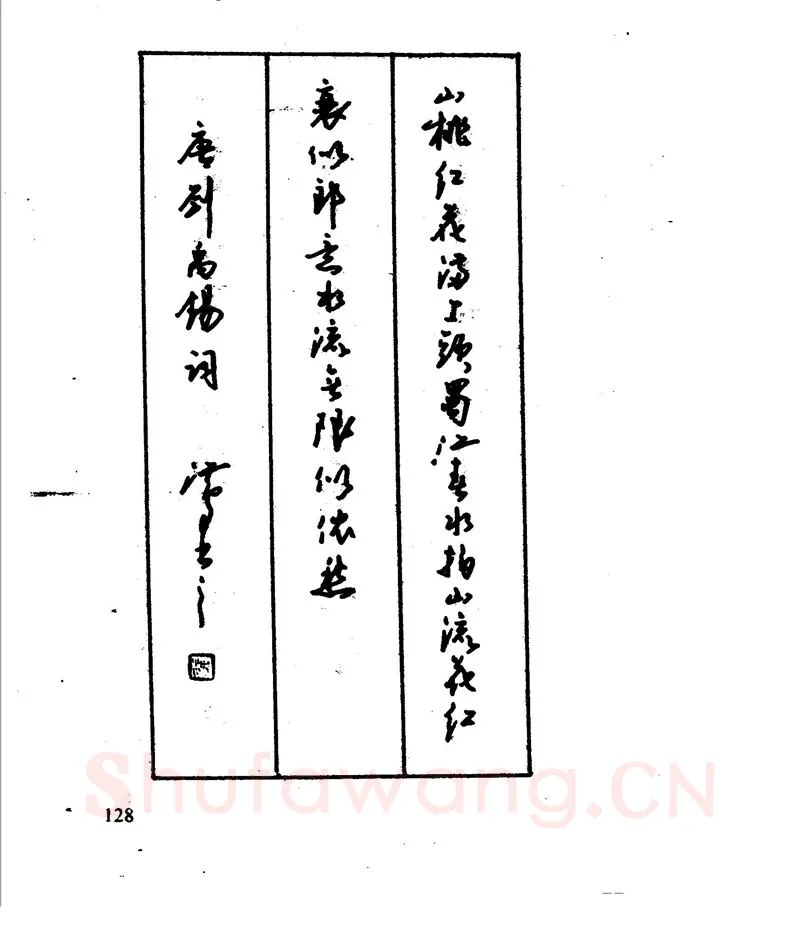 山桃红花满上頭蜀江春水拍山流花红
衰似郎意水流无限似侬愁
唐刘禹锡词 书之
128
Shufawang.CN